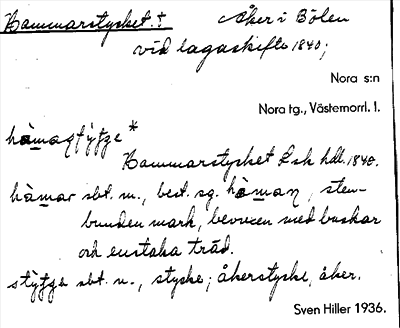 Hammarstycket. † Åker i Bölen
vid lagaskifte 1840;
Nora s:n
Nora tg., Västernorrl. l.
hàmaʂtỳtʂe *
Hammarstycket Lsk hdl. 1840.
hàmar sbt. m., best. sg. hàmaɳ, sten-
bunden mark, bevuxen med buskar
och enstaka träd.
stỳtʂe sbt. n., stycke; åkerstycke, åker.
Sven Hiller 1936.